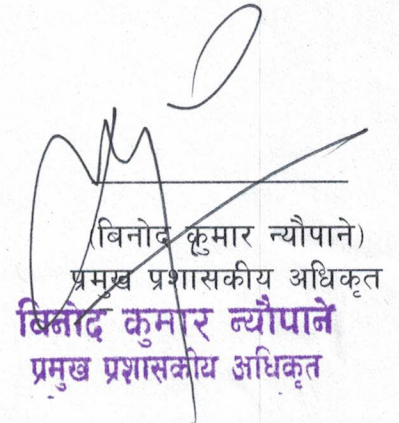 (बिनोद कुमार न्यौपाने)
प्रमुख प्रशासकीय अधिकृत
बिनोद कुमार न्यौपाने
प्रमुख प्रशासकीय अधिकृत